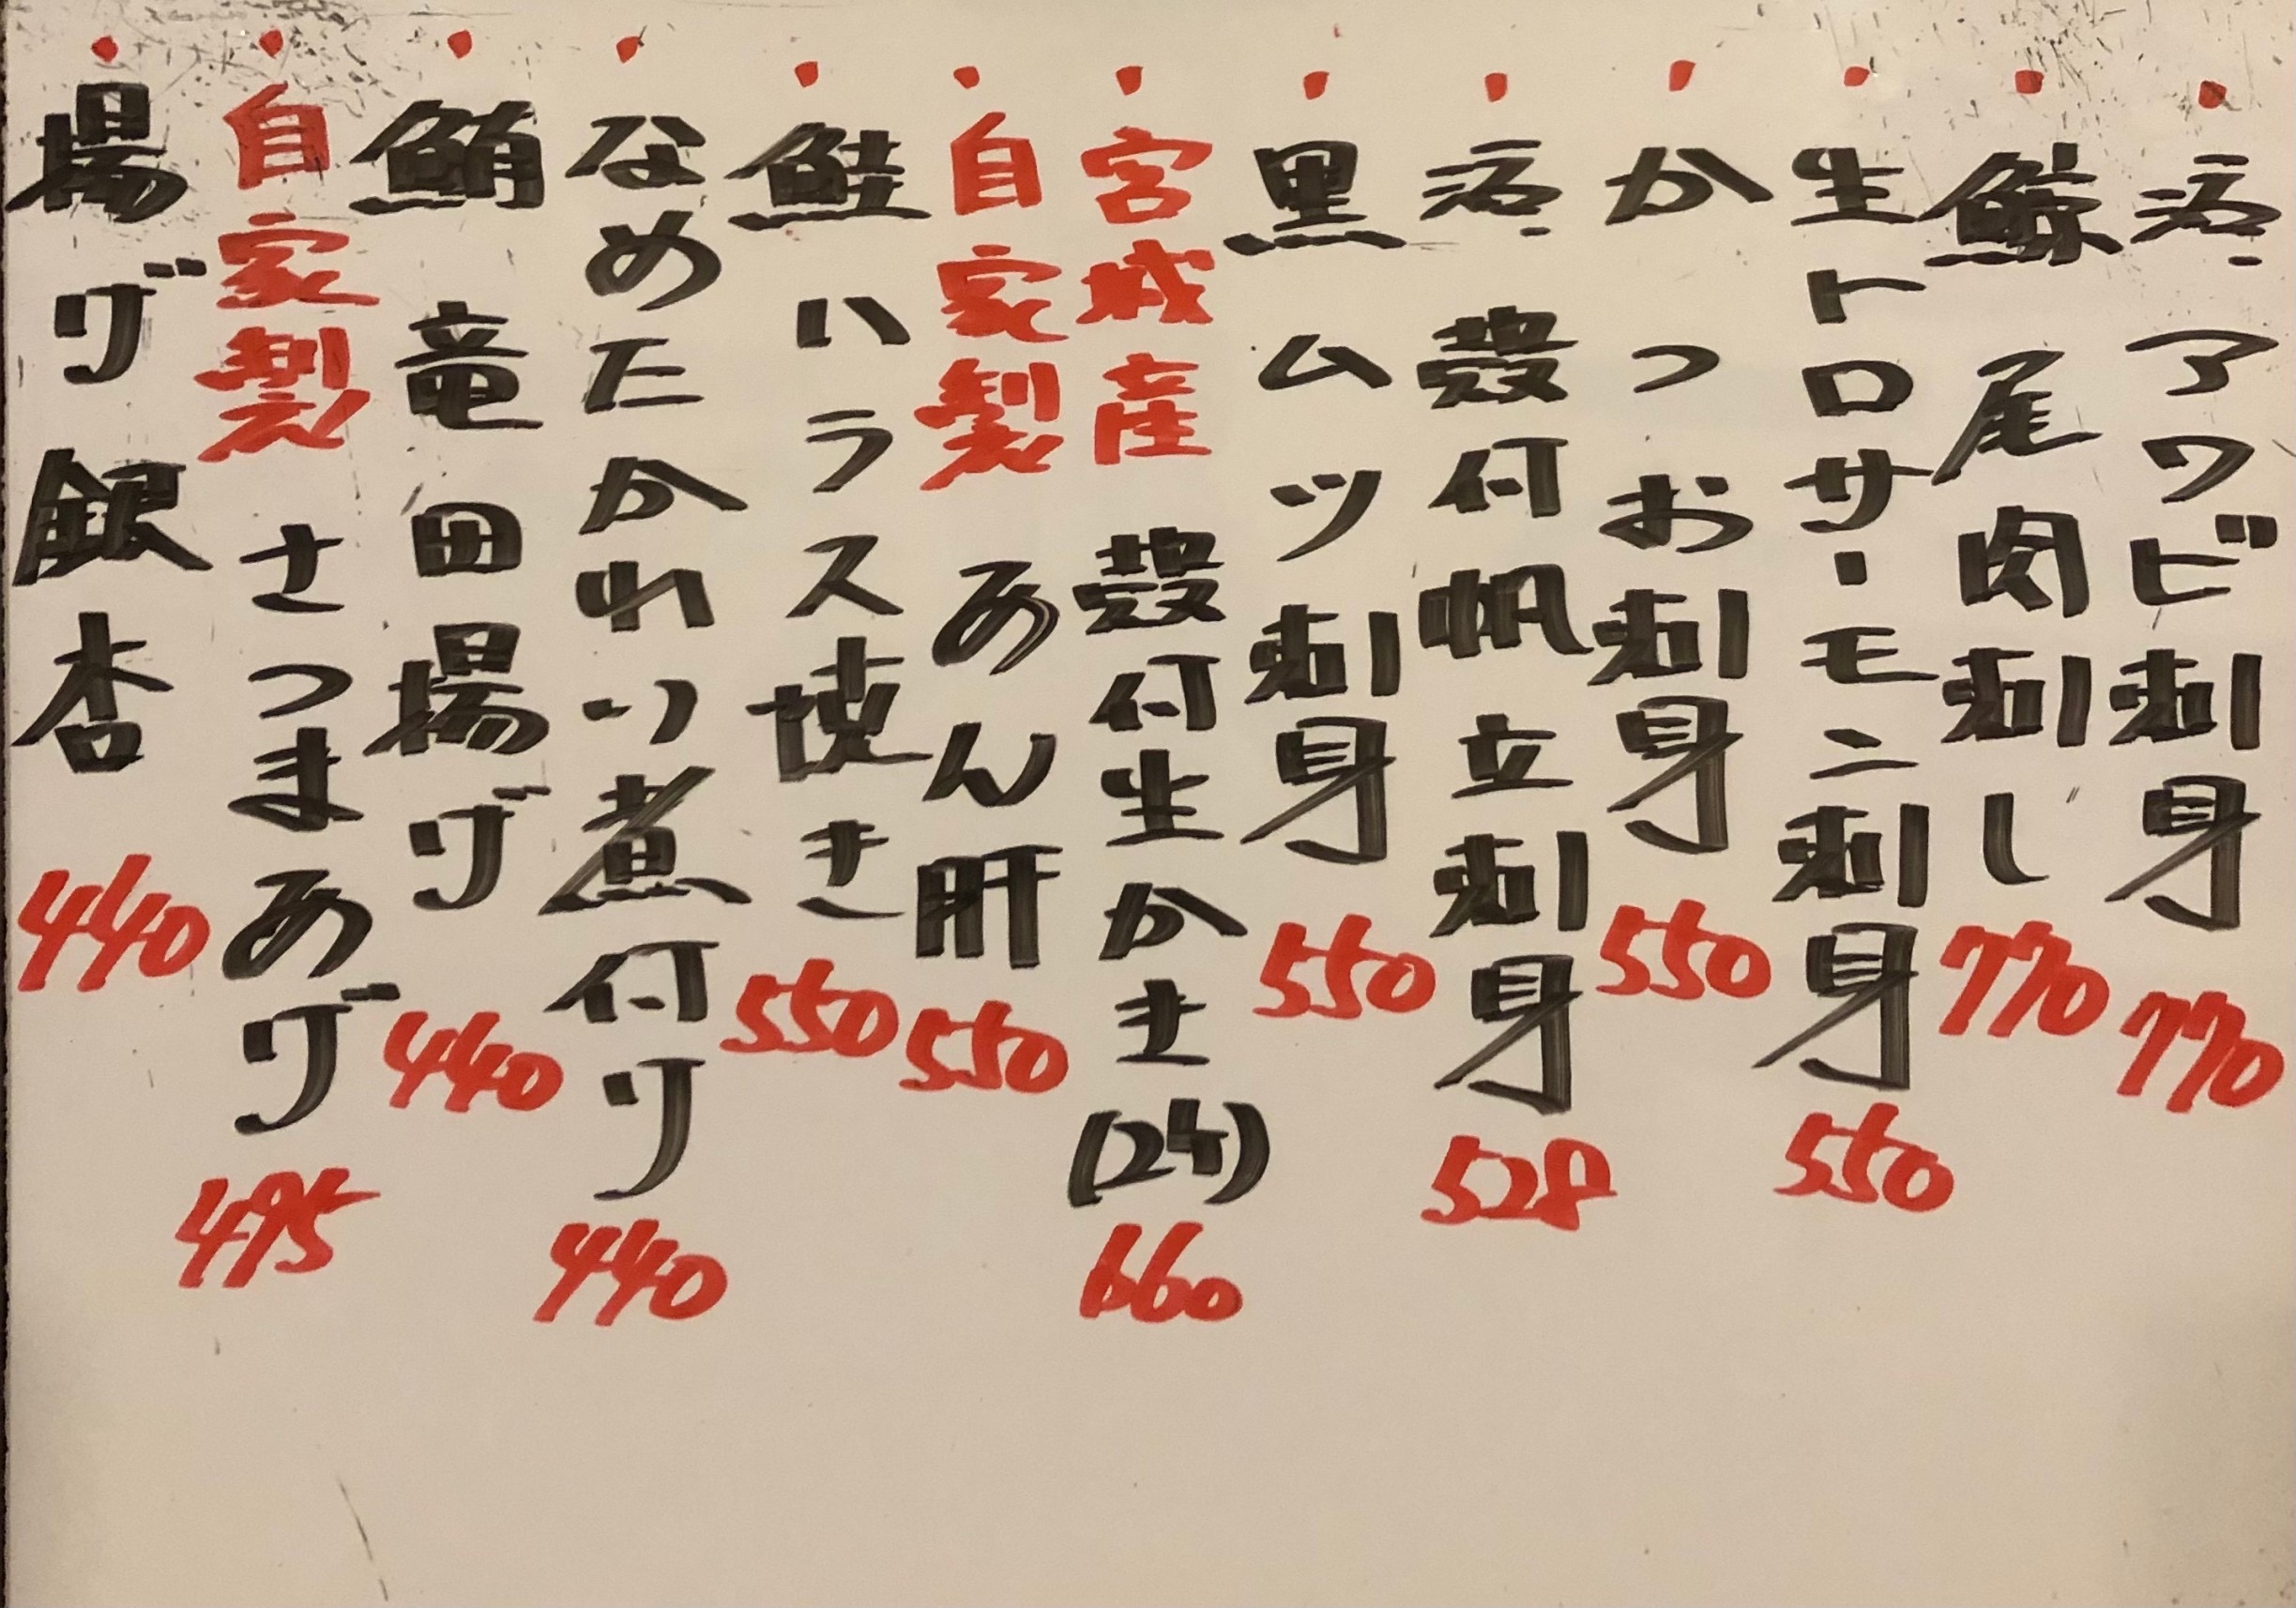 活アワビ刺身 770
鯨尾肉刺し 770
生トロサーモン刺身 550
かつお刺身 550
活殻付帆立刺身 528
黒ムツ刺身 550
宮城産 殻付生かき(2ケ) 660
自家製 あん肝 550
鮭ハラス焼き 550
なめたかれい煮付け 440
鮪竜田揚げ 440
自家製 さつまあげ 495
揚げ銀杏 440